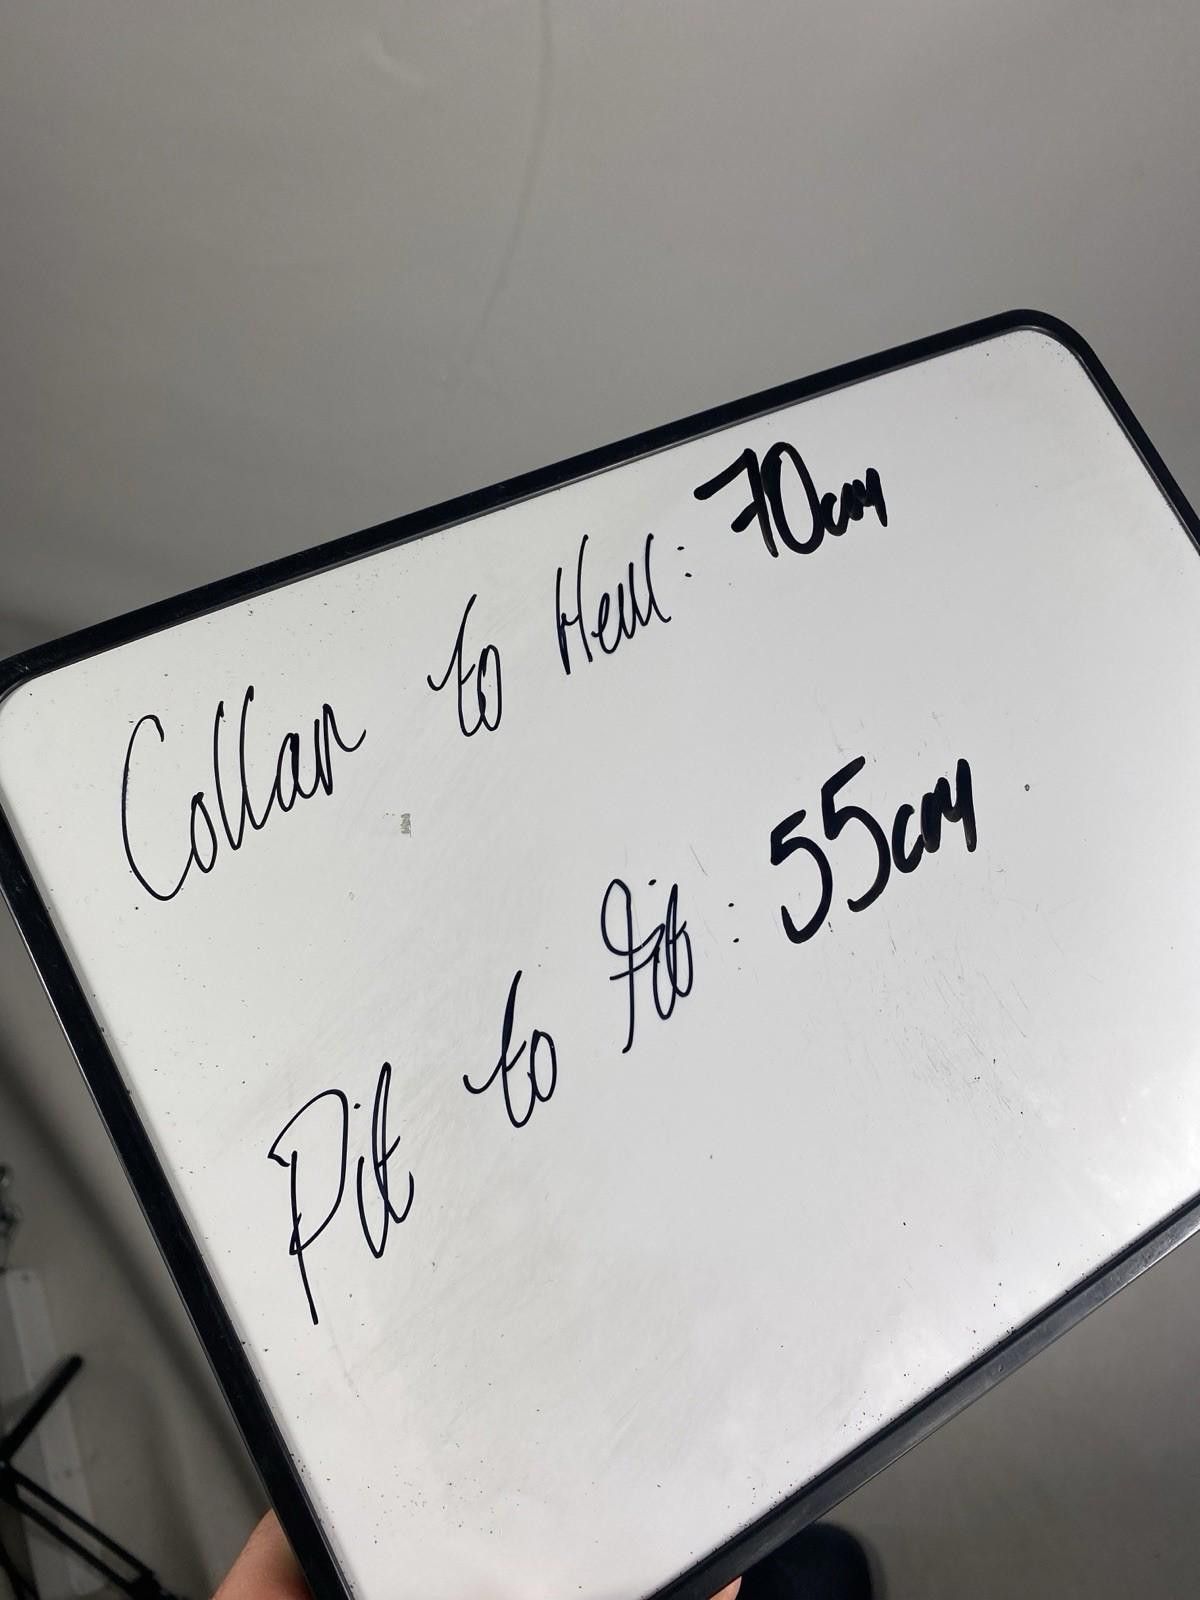 Collar to Hem: 70cm
Pit to Pit: 55cm